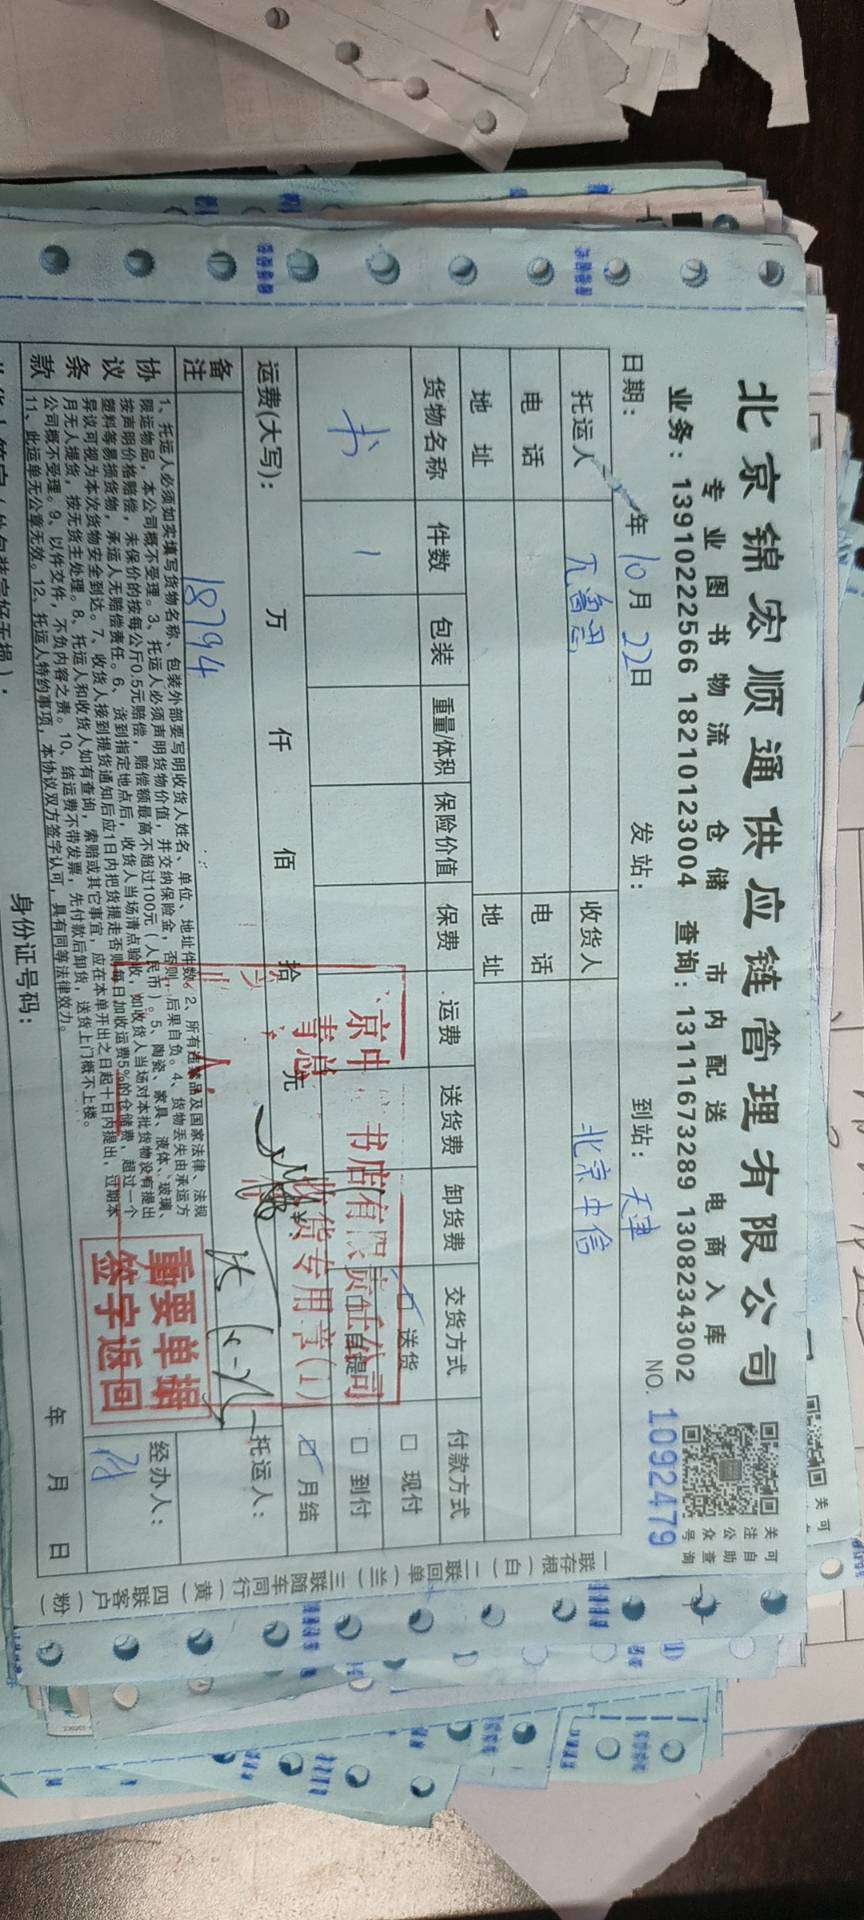 北京锦宏顺通供应链管理有限公司
专业图书物流 仓储 市内配送 电商入库
业务：13910222566 18210123004 查询：13111673289 13082343002
关注公众号
可自助查询
NO. 1092479
日期： 年 10月 22日 发站： 到站：天津
托运人 收货人 北京中信
电话 电话
地址 地址
货物名称 件数 包装 重量/体积 保险价值 保费 运费 送货费 卸货费 交货方式 付款方式
书 1 送货 自提 现付 到付 月结
运费(大写)： 万 仟 佰 拾 元
备注 18794
托运人：
经办人：
协议条款
1、托运人必须如实填写货物名称、包装外部要写明收货人姓名、单位、地址件数。2、所有危禁品及国家法律、法规
限运物品，本公司概不受理。3、托运人必须声明货物价值，并交纳保险金，否则，后果自负。4、货物丢失由承运方
按声明价格赔偿，未保价的按每公斤0.5元赔偿，赔偿额最高不超过100元（人民币）。5、陶瓷、家具、液体、玻璃、
塑料等易损货物，承运人无赔偿责任。6、货到指定地点后，收货人当场清点验收，如收货人当场对本批货物没有提出
异议可视为本次货物安全到达。7、收货人接到提货通知后应1日内把货提走否则每日加收运费5%的仓储费，超过一个
月无人提货，按无货主处理。8、托运人和收货人如有查询，索赔或其它事宜，应在本单开出之日起十日内提出，过期本
公司概不受理。9、以件交件，不负内容之责。10、结运费不带发票，先付款后卸货，送货上门概不上楼。
11、此运单无公章无效。12、托运人特约事项，本协议双方签字认可，具有同等法律效力。
重要单据
签字返回
书店有限责任公司
收货专用章(1)
年 月 日
身份证号码：
一联存根（白） 二联回单（兰） 三联随车同行（黄） 四联客户（粉）